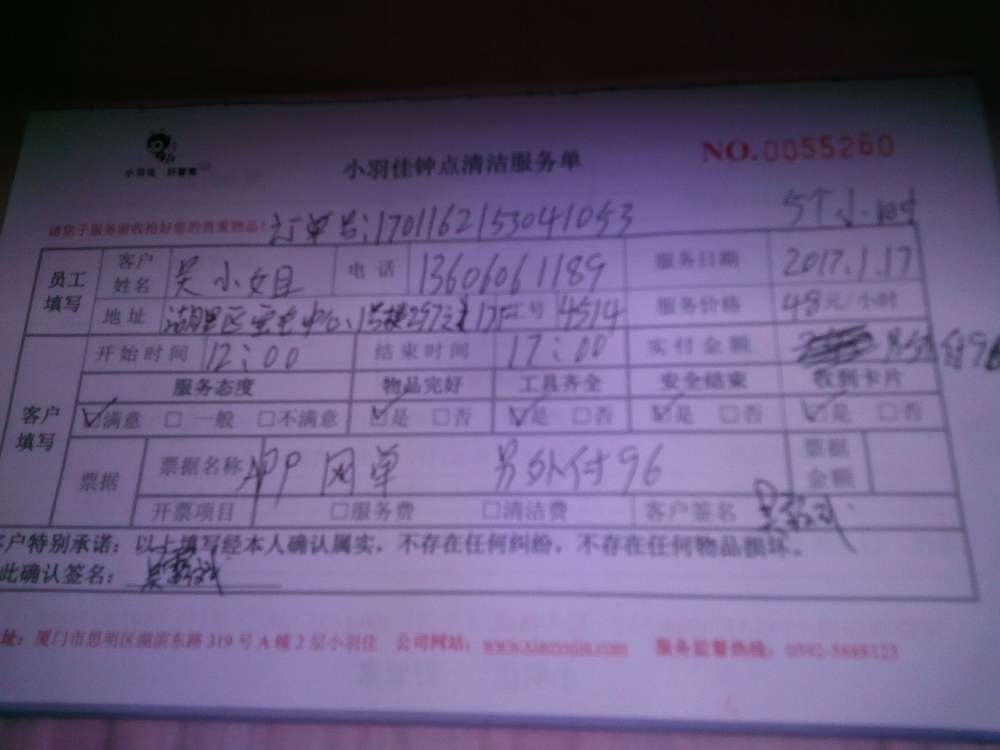 小羽佳 好管家
小羽佳钟点清洁服务单
NO.0055260
请您于服务前收拾好您的贵重物品! 订单号:1701162153041053 5个小时
员工填写 客户姓名 吴小姐 电话 13606061189 服务日期 2017.1.17
地址 湖里区 中心 号 4514 服务价格 48元/小时
客户填写 开始时间 12:00 结束时间 17:00 实付金额 另外付96
服务态度 物品完好 工具齐全 安全结束 收到卡片
☑满意 □一般 □不满意 ☑是 □否 ☑是 □否 ☑是 □否 ☑是 □否
票据 票据名称 APP网单 另外付96 票据金额
开票项目 □服务费 □清洁费 客户签名 吴
客户特别承诺:以上填写经本人确认属实,不存在任何纠纷,不存在任何物品损坏。
此确认签名: 吴
址:厦门市思明区湖滨东路319号A幢2层小羽佳 公司网站: 服务监督热线: